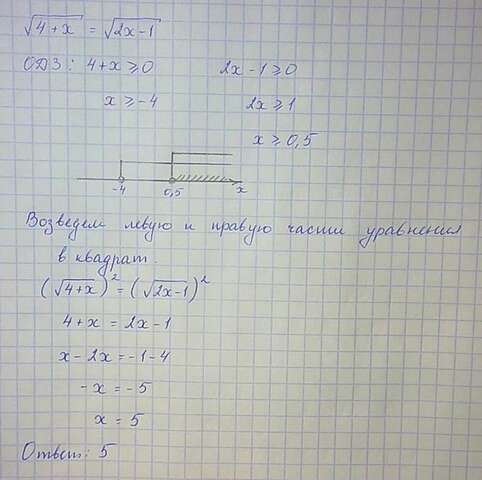 √4+x = √2x-1
ОДЗ: 4+x ≥ 0 2x-1 ≥ 0
x ≥ -4 2x ≥ 1
x ≥ 0,5
-4 0,5 x
Возведем левую и правую части уравнения
в квадрат.
(√4+x)² = (√2x-1)²
4+x = 2x-1
x-2x = -1-4
-x = -5
x = 5
Ответ: 5